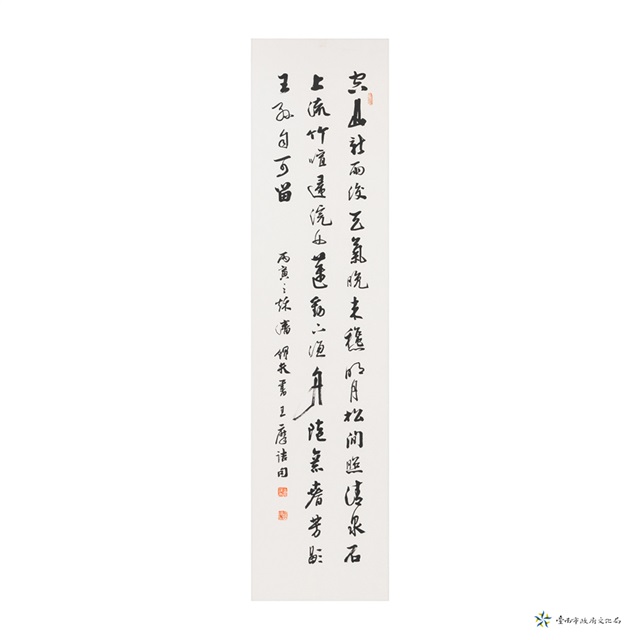 空山新雨後天氣晚來穐明月松間照清泉石
上流竹喧歸浣女蓮動下漁舟隨意春芳歇
王孫自可留
丙寅之秌潘書王摩詰句
臺南市政府文化局